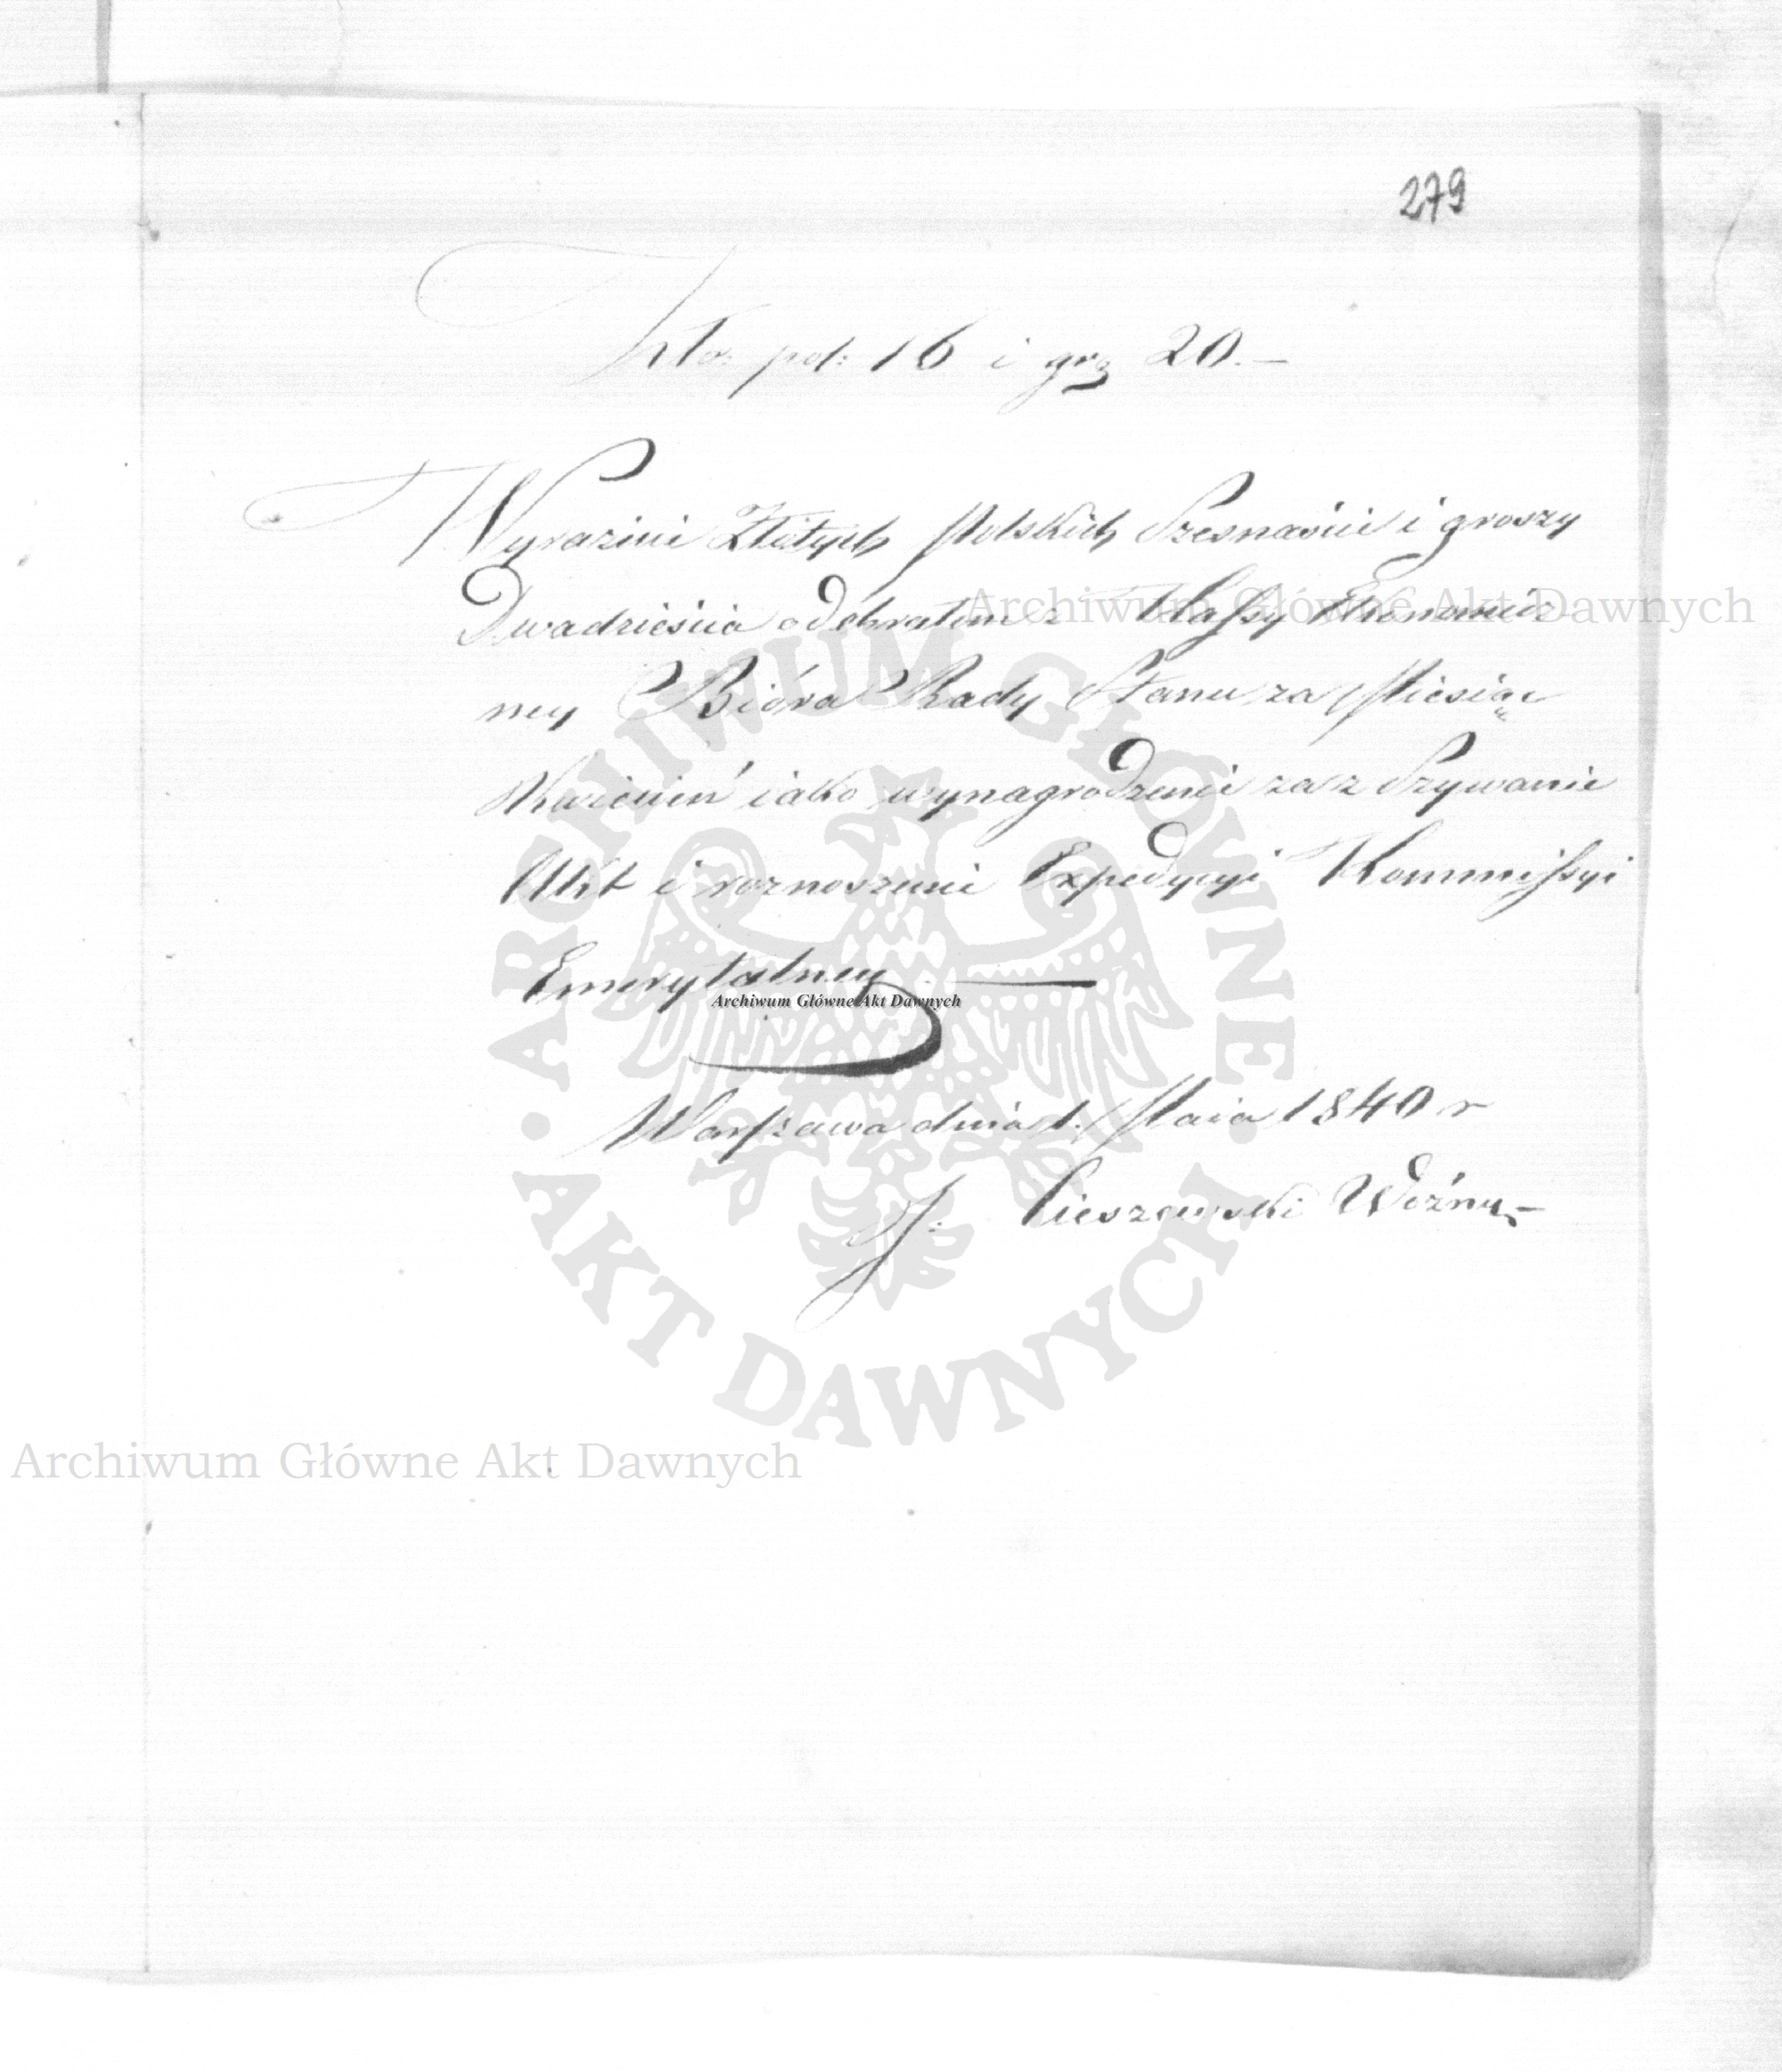 279
Zło: pol: 16 i gr 20.—
Wyraznie Złotych Polskich Szesnaście i groszy
Dwadzieścia odebrałem z Kassy Ekonomicz
ney Bióra Rady Stanu za Miesiąc
Kwiecień iako wynagrodzenie za z Szywanie
Akt i roznoszenie Expedycyi Kommissyi
Emerytalney —
Warszawa dnia 1. Maia 1840 r
J: Cieszewski Woźny —
Archiwum Główne Akt Dawnych
Archiwum Główne Akt Dawnych
Archiwum Główne Akt Dawnych
ARCHIWUM GŁÓWNE · AKT DAWNYCH ·